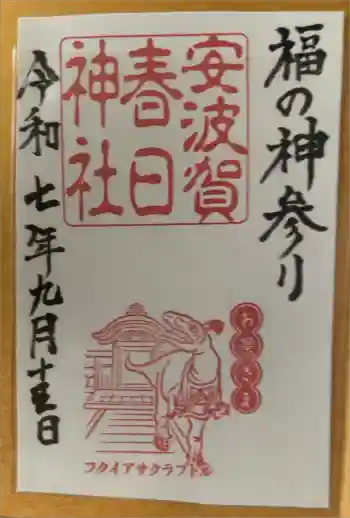 福の神参り
安波賀
春日
神社
令和七年九月十五日
フクイアサクラプトル